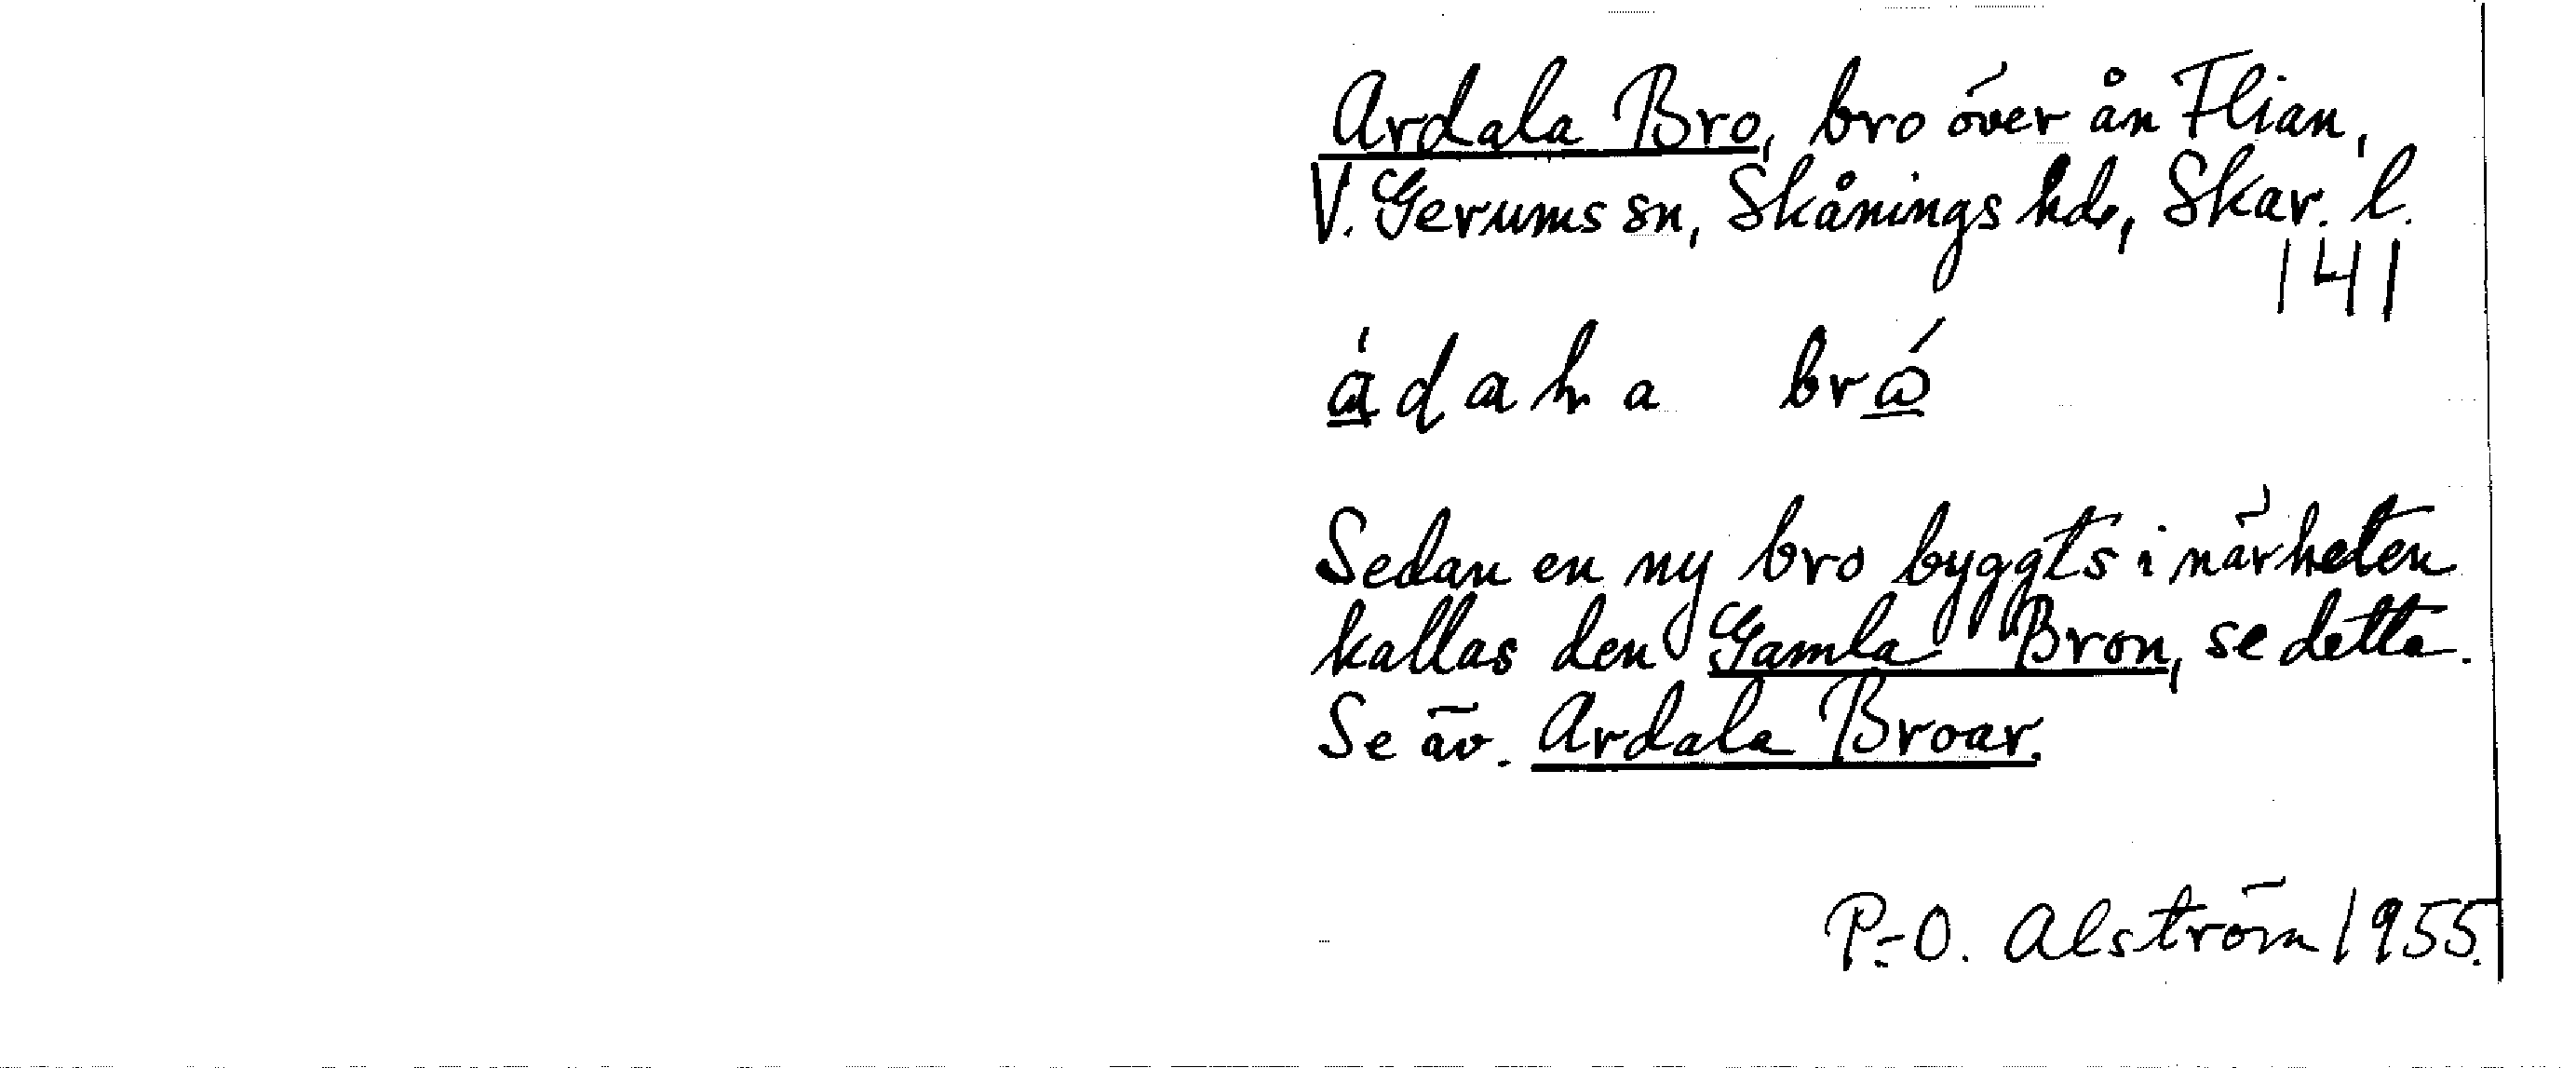 Ardala Bro, bro över ån Flian,
V. Gerums sn, Skånings hd, Skar. l.
141
Sedan en ny bro byggts i närheten
kallas den Gamla Bron, se detta.
Se äv. Ardala Broar.
P.-O. Alström 1955.